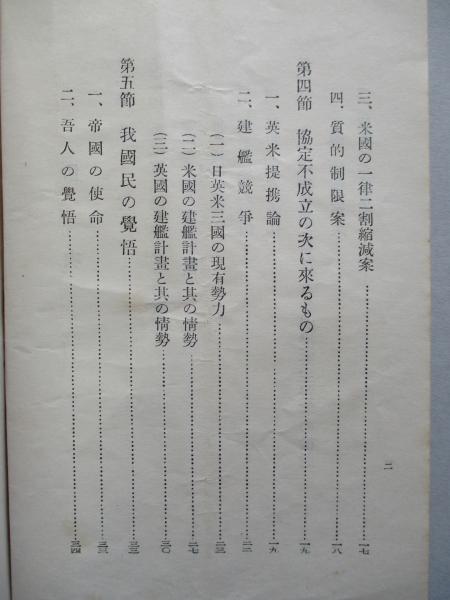 三、米國の一律二割縮減案……一七
四、質的制限案……一八
第四節 協定不成立の次に來るもの……一九
一、英米提携論……一九
二、建艦競爭……二二
(一)日英米三國の現有勢力……二三
(二)米國の建艦計畫と其の情勢……二七
(三)英國の建艦計畫と其の情勢……三〇
第五節 我國民の覺悟……三三
一、帝國の使命……三三
二、吾人の覺悟……三四
二